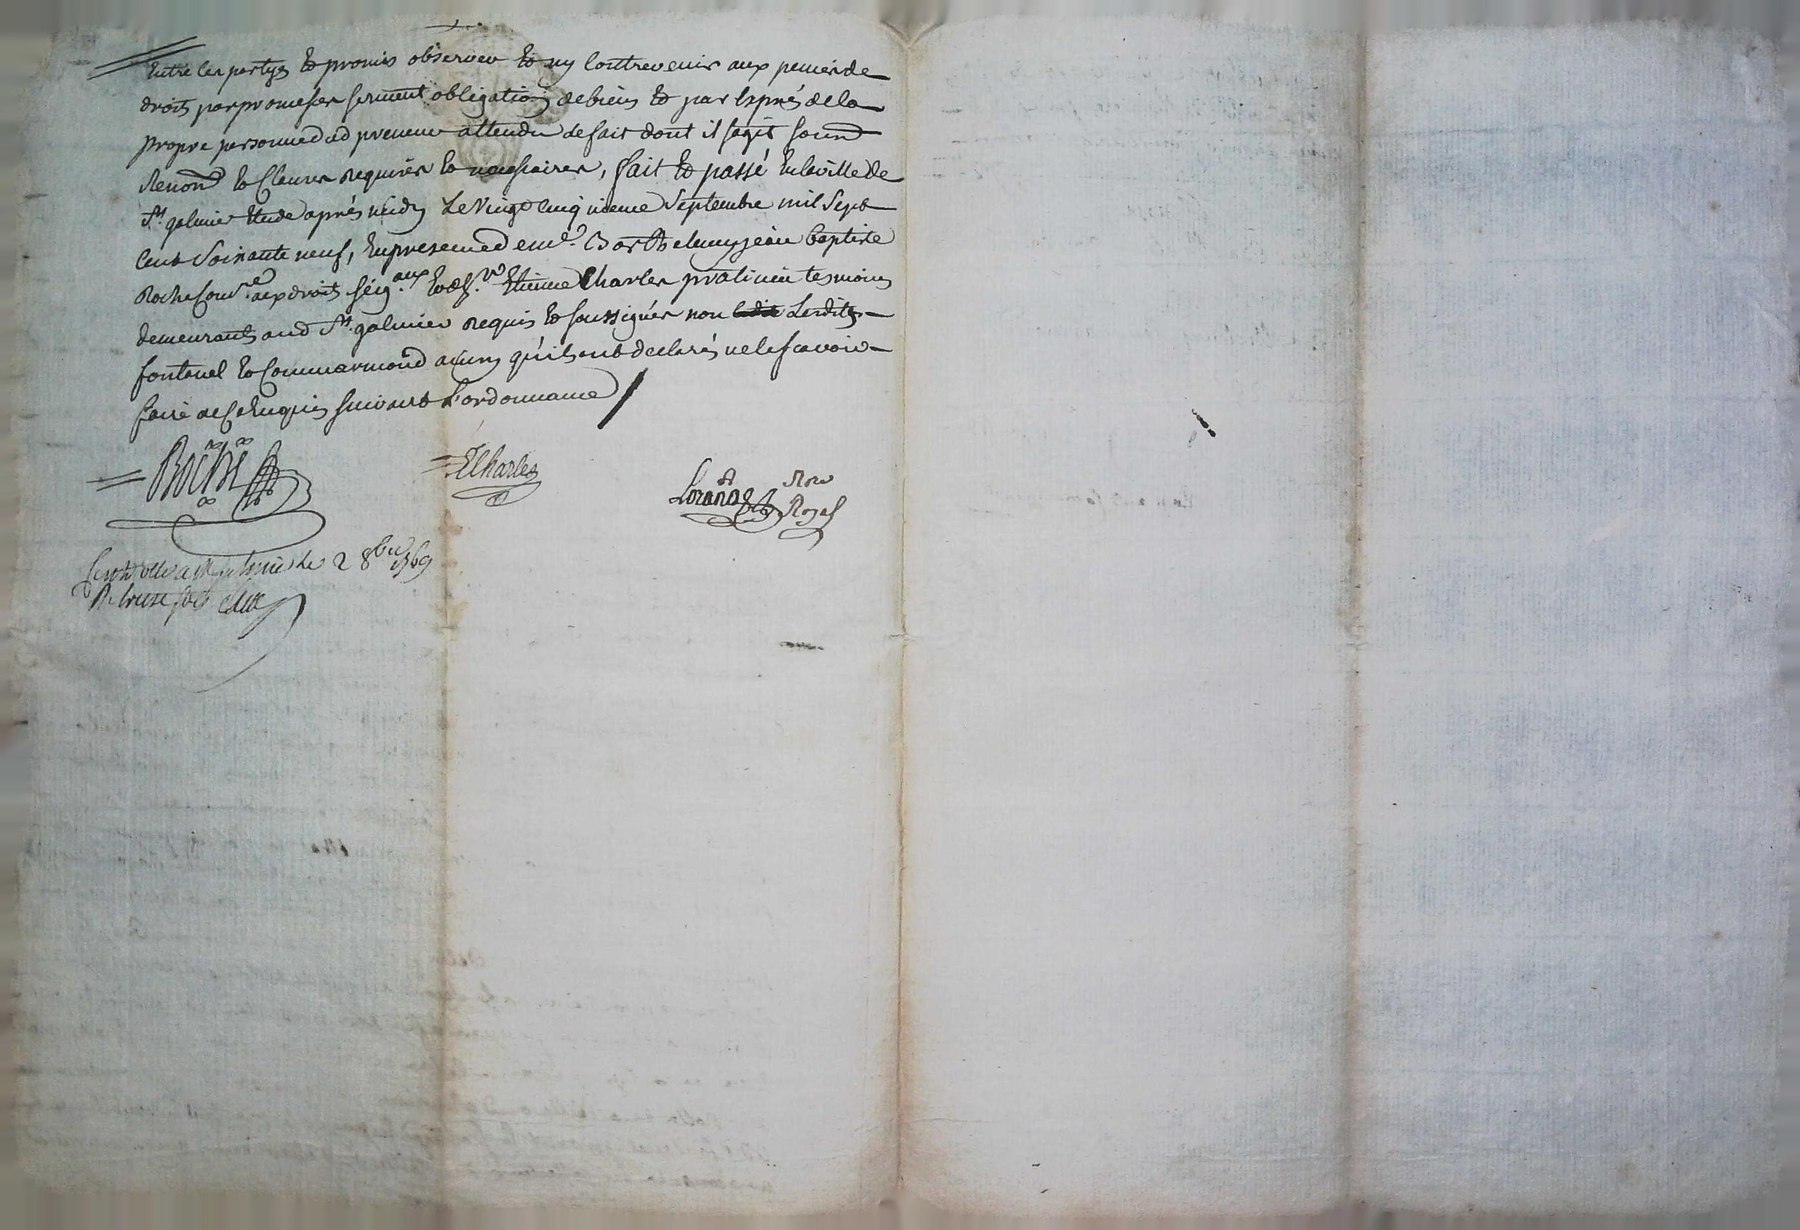 Entre les partyes Et promis observer Et ny Contrevenir aux peines de
droits par promesses serment obligation de biens Et par Exprés de la
propre personne dud preneur attendu le fait dont il sagit sound
Renond Et Clauses requises Et necessaires, fait Et passé En la ville de
St galmier Etude après midy Le Vingt Cinq uieme Septembre mil Sept
Cent Soixante neuf, En presence de me Barthelemy jean baptiste
Roche Comre aux droits seigaux Et de sr Etienne Charles praticien temoins
demeurants aud St galmier requis Et soussignés non Lesdits
fontanel Et Commarmond acquis qu'ils ont declarés ne le scavoir
faire de Ce Enquis suivant L'ordonnance /
Roche
ECharles
Nore
Royal
le 2 8bre 1769